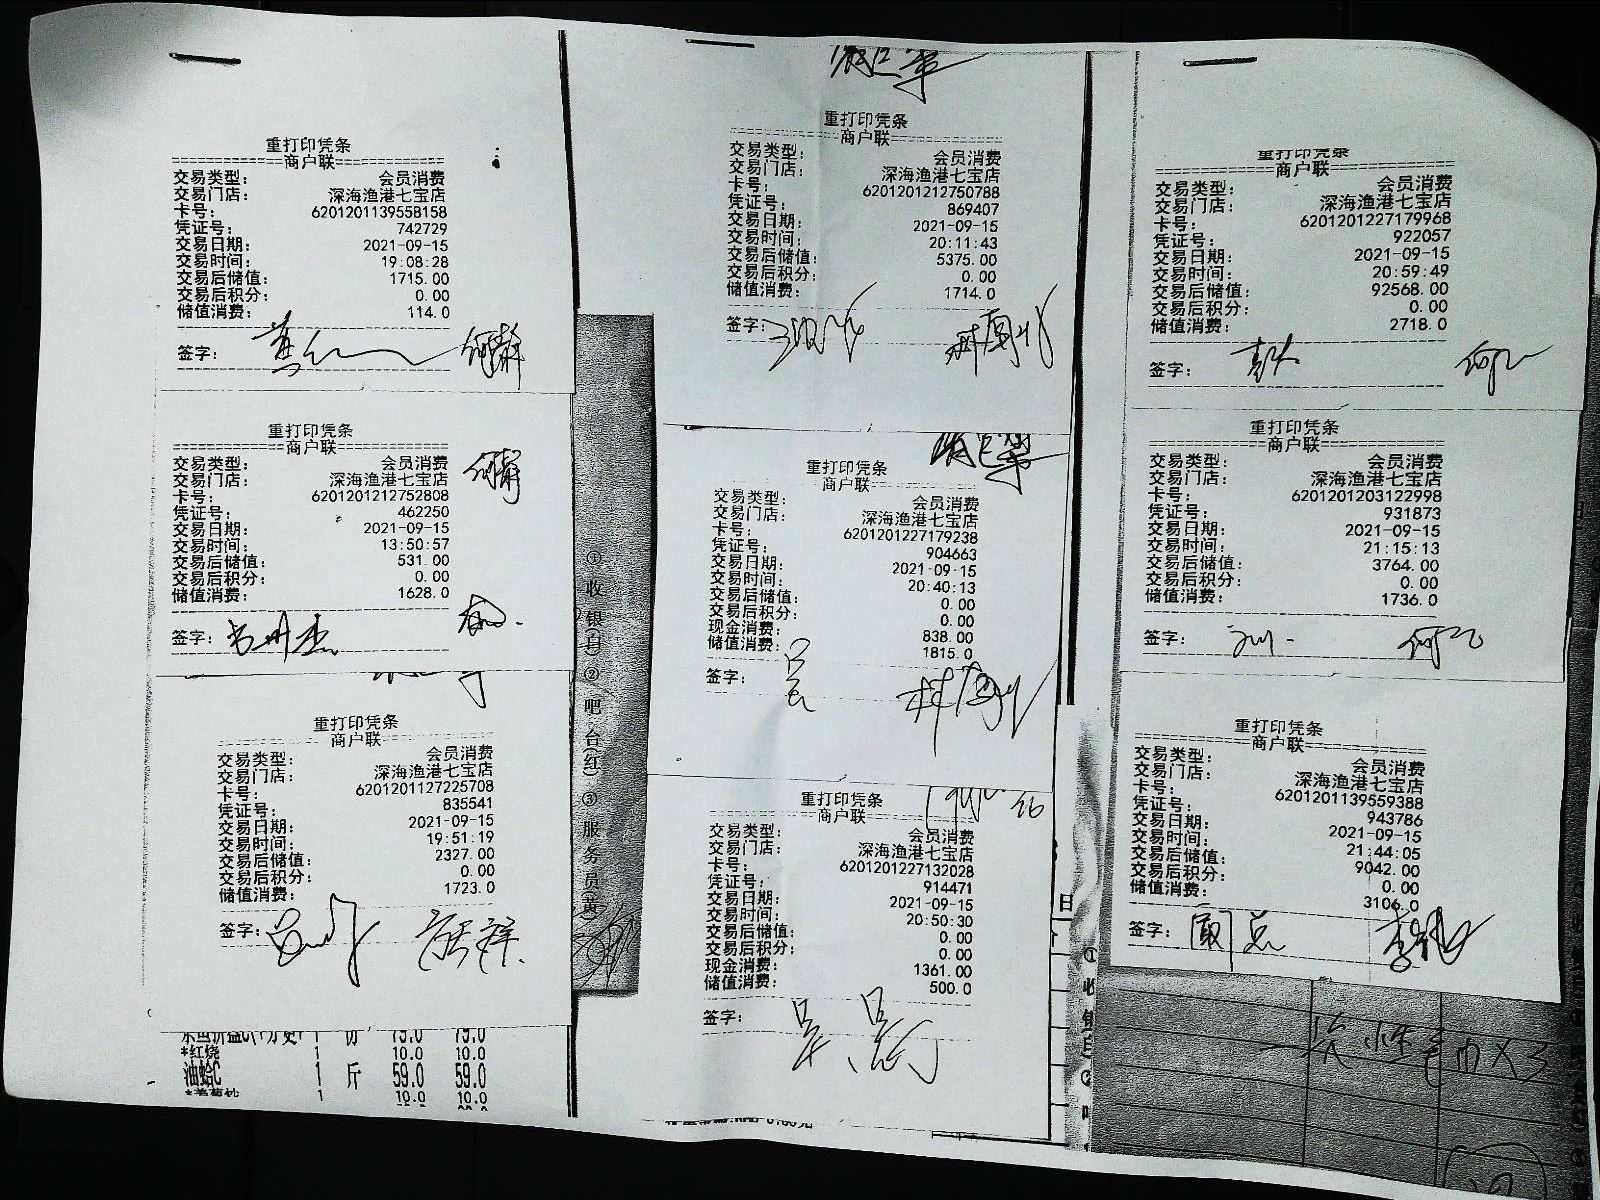 重打印凭条
=============商户联=============
交易类型: 会员消费
交易门店: 深海渔港七宝店
卡号: 6201201139558158
凭证号: 742729
交易日期: 2021-09-15
交易时间: 19:08:28
交易后储值: 1715.00
交易后积分: 0.00
储值消费: 114.0
签字:
重打印凭条
=============商户联=============
交易类型: 会员消费
交易门店: 深海渔港七宝店
卡号: 6201201212752808
凭证号: 462250
交易日期: 2021-09-15
交易时间: 13:50:57
交易后储值: 531.00
交易后积分: 0.00
储值消费: 1628.0
签字:
重打印凭条
=============商户联=============
交易类型: 会员消费
交易门店: 深海渔港七宝店
卡号: 6201201127225708
凭证号: 835541
交易日期: 2021-09-15
交易时间: 19:51:19
交易后储值: 2327.00
交易后积分: 0.00
储值消费: 1723.0
签字:
*红烧 1 10.0 10.0
油蛤C 1 斤 59.0 59.0
1 10.0 10.0
①收银(白)②(吧台(红)③服务员(黄)
重打印凭条
=============商户联=============
交易类型: 会员消费
交易门店: 深海渔港七宝店
卡号: 6201201212750788
凭证号: 869407
交易日期: 2021-09-15
交易时间: 20:11:43
交易后储值: 5375.00
交易后积分: 0.00
储值消费: 1714.0
签字:
重打印凭条
=============商户联=============
交易类型: 会员消费
交易门店: 深海渔港七宝店
卡号: 6201201227179238
凭证号: 904663
交易日期: 2021-09-15
交易时间: 20:40:13
交易后储值: 0.00
交易后积分: 0.00
现金消费: 838.00
储值消费: 1815.0
签字: 吴
重打印凭条
=============商户联=============
交易类型: 会员消费
交易门店: 深海渔港七宝店
卡号: 6201201227132028
凭证号: 914471
交易日期: 2021-09-15
交易时间: 20:50:30
交易后储值: 0.00
交易后积分: 0.00
现金消费: 1361.00
储值消费: 500.0
签字:
重打印凭条
=============商户联=============
交易类型: 会员消费
交易门店: 深海渔港七宝店
卡号: 6201201227179968
凭证号: 922057
交易日期: 2021-09-15
交易时间: 20:59:49
交易后储值: 92568.00
交易后积分: 0.00
储值消费: 2718.0
签字:
重打印凭条
=============商户联=============
交易类型: 会员消费
交易门店: 深海渔港七宝店
卡号: 6201201203122998
凭证号: 931873
交易日期: 2021-09-15
交易时间: 21:15:13
交易后储值: 3764.00
交易后积分: 0.00
储值消费: 1736.0
签字:
重打印凭条
=============商户联=============
交易类型: 会员消费
交易门店: 深海渔港七宝店
卡号: 6201201139559388
凭证号: 943786
交易日期: 2021-09-15
交易时间: 21:44:05
交易后储值: 9042.00
交易后积分: 0.00
储值消费: 3106.0
签字:
毛巾X3